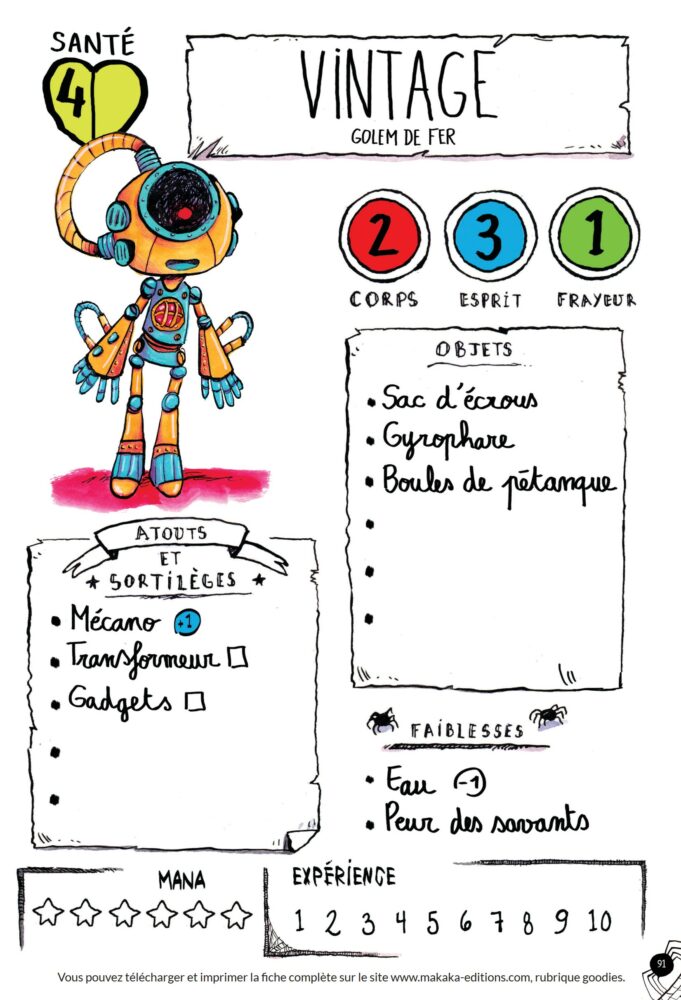 SANTÉ
4
VINTAGE
GOLEM DE FER
2 3 1
CORPS ESPRIT FRAYEUR
OBJETS
• Sac d'écrous
• Gyrophare
• Boules de pétanque
•
•
•
ATOUTS
ET
★ SORTILÈGES ★
• Mécano +1
• Transformeur □
• Gadgets □
•
•
FAIBLESSES
• Eau -1
• Peur des savants
MANA
☆☆☆☆☆☆
EXPÉRIENCE
1 2 3 4 5 6 7 8 9 10
91
Vous pouvez télécharger et imprimer la fiche complète sur le site www.makaka-editions.com, rubrique goodies.